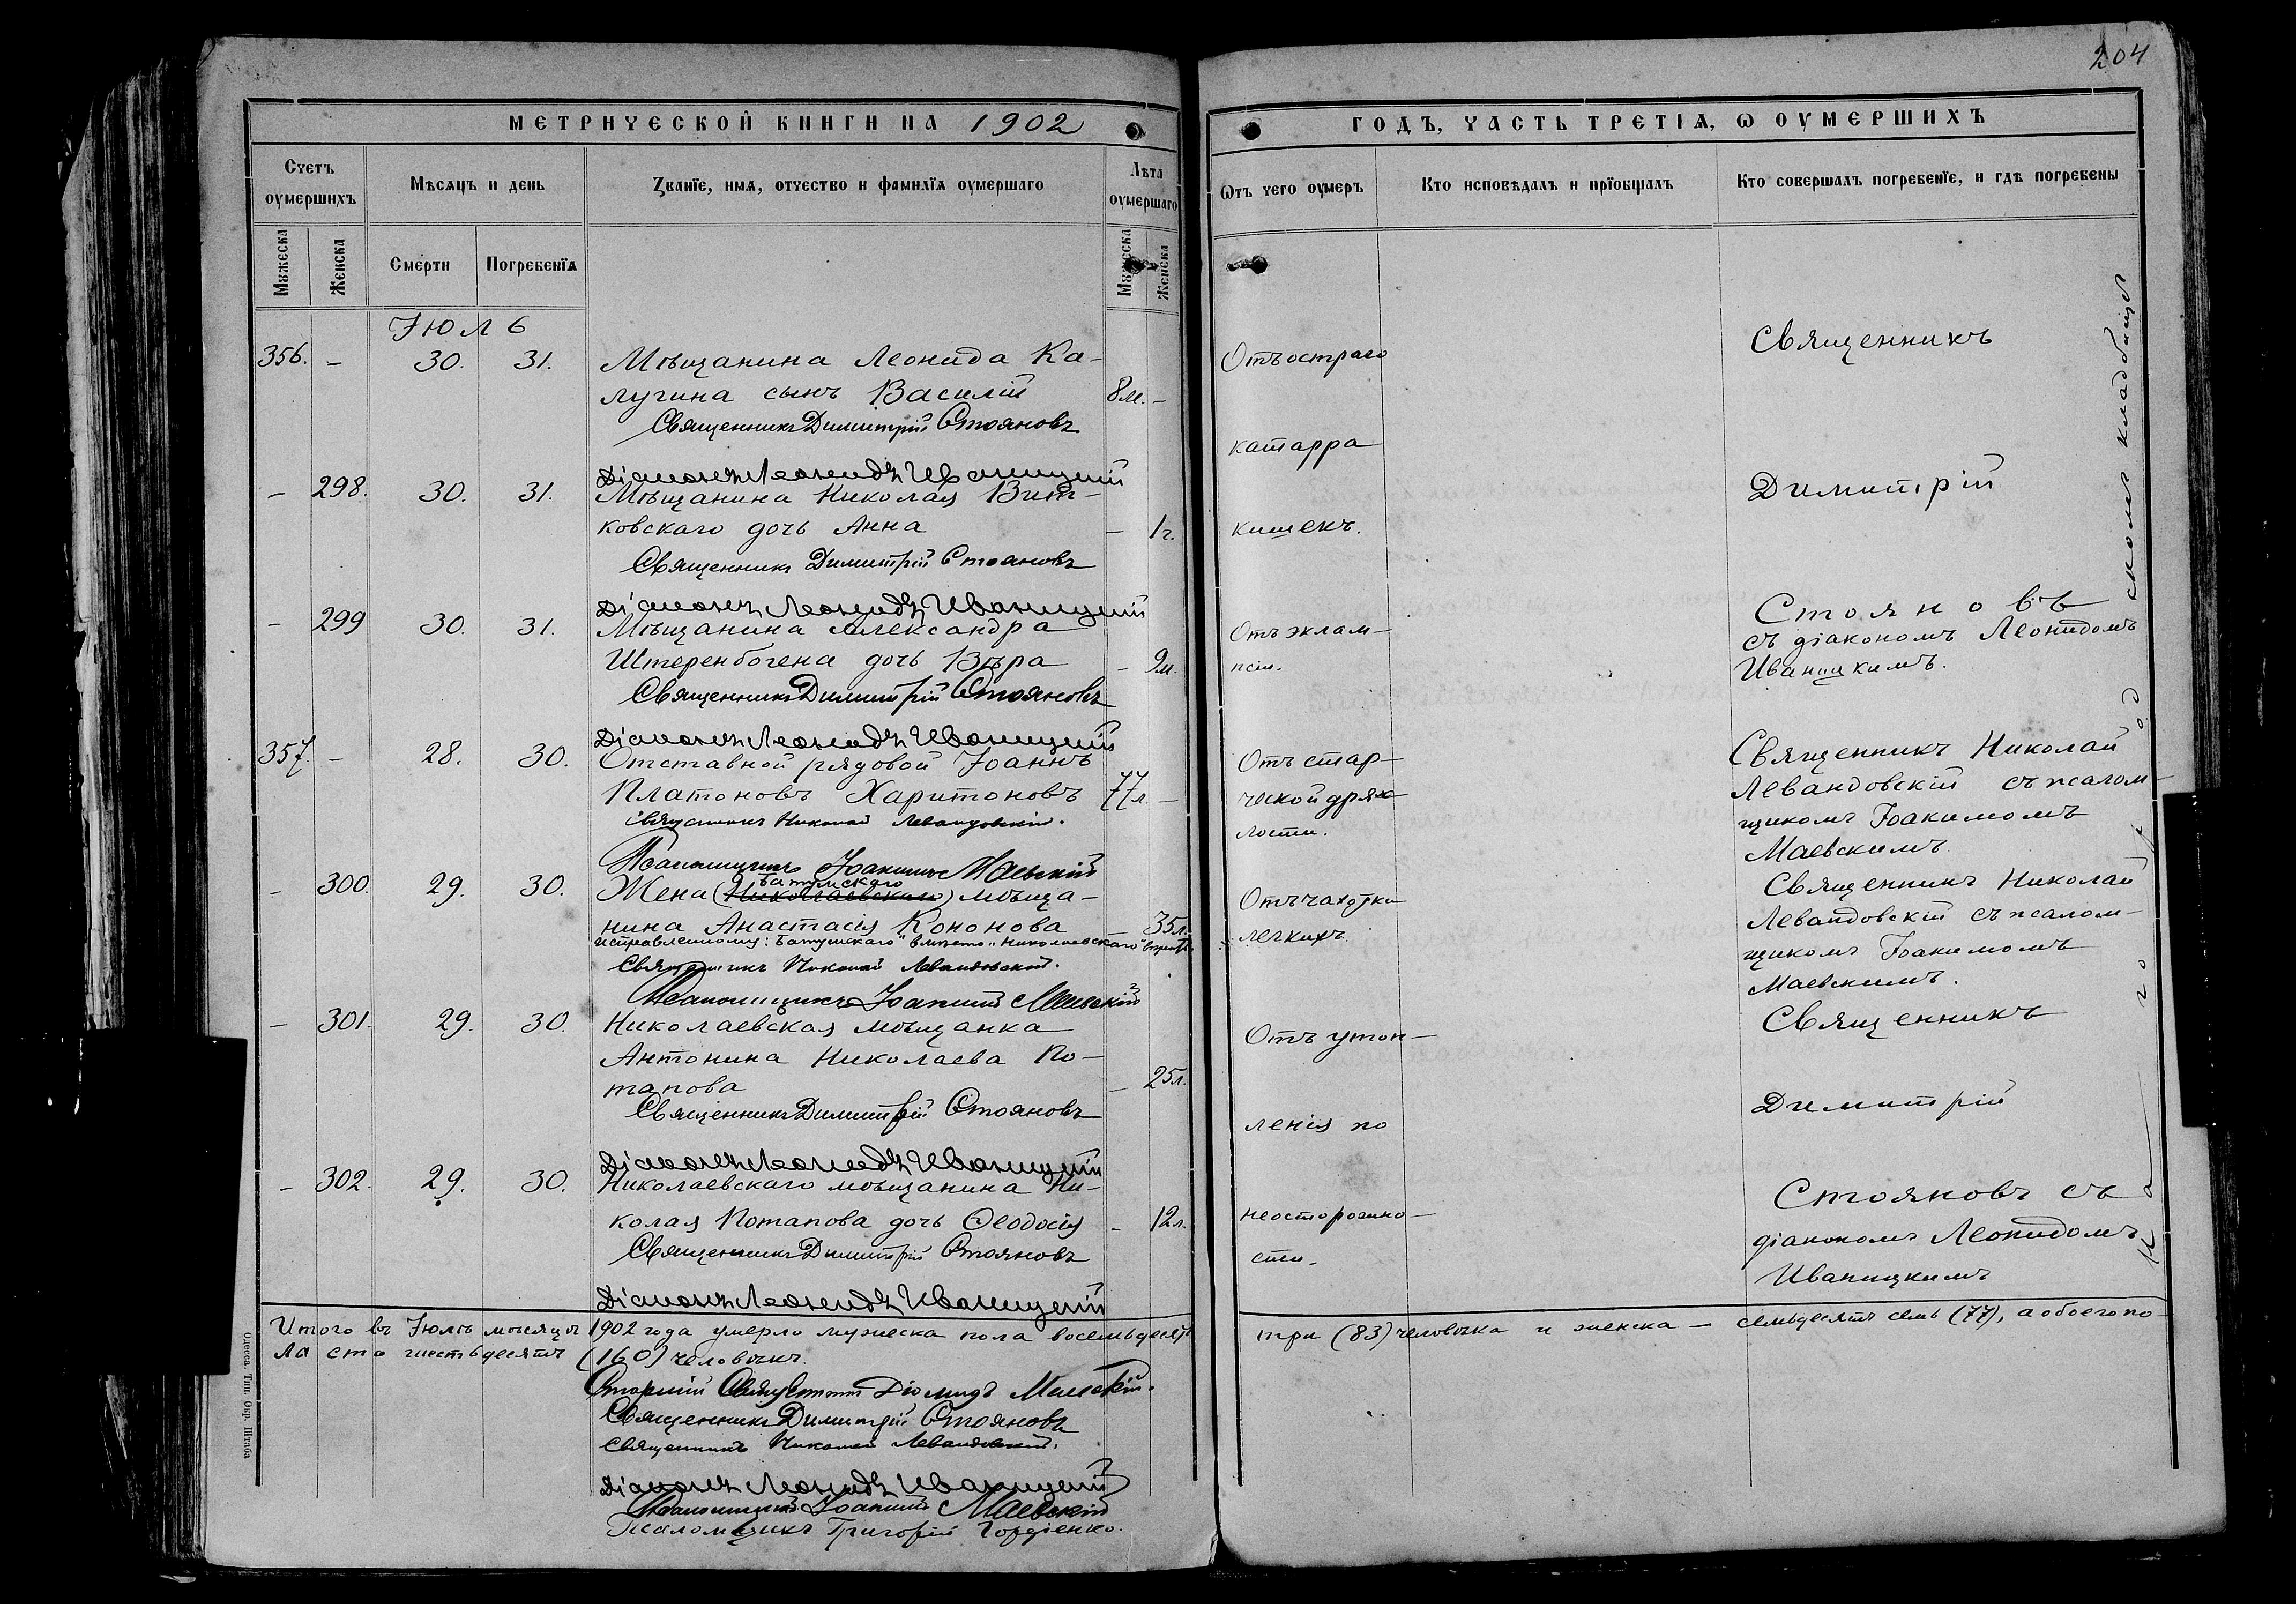 204
МЕТРИЧЕСКОЙ КНИГИ НА 1902
ГОДЪ, ЧАСТЬ ТРЕТІЯ, Ѡ ОУМЕРШИХЪ
Счетъ оумершихъ
Мѣсяцъ и день
Званїе, имя, отчество и фамилїя оумершаго
Лѣта оумершаго
Ѿтъ чего оумеръ
Кто исповѣдалъ и прїобщалъ
Кто совершалъ погребенїе, и гдѣ погребены
Мꙋжеска
Женска
Смерти
Погребенїя
Мꙋжеска
Женска
Іюль
356. - 30. 31. Мѣщанина Леонида Ка-
лугина сынъ Василій 8м. -
Священникъ Димитрій Стояновъ
Діаконъ Леонидъ Иваницкій
- 298. 30. 31. Мѣщанина Николая Вит-
ковскаго дочь Анна - 1г.
Священникъ Димитрій Стояновъ
Діаконъ Леонидъ Иваницкій
- 299 30. 31. Мѣщанина Александра
Штеренбогена дочь Вѣра - 9м.
Священникъ Димитрій Стояновъ
Діаконъ Леонидъ Иваницкій
357. - 28. 30. Отставной рядовой Іоаннъ
Платоновъ Харитоновъ 77л. -
Священникъ Николай Левандовскій.
Псаломщикъ Іоакимъ Маевскій
Батумскаго
- 300. 29. 30. Жена (Николаевскаго) мѣща-
нина Анастасія Кононова - 35л.
исправленному: "Батумскаго" вмѣсто "Николаевскаго" вѣрить
Священникъ Николай Левандовскій.
Псаломщикъ Іоакимъ Маевскій
- 301. 29. 30. Николаевская мѣщанка
Антонина Николаева По-
тапова - 25л.
Священникъ Димитрій Стояновъ
Діаконъ Леонидъ Иваницкій
- 302. 29. 30. Николаевскаго мѣщанина Ни-
колая Потапова дочь Ѳеодосія - 12л.
Священникъ Димитрій Стояновъ
Діаконъ Леонидъ Иваницкій
Отъ остраго
катарра
кишекъ.
Отъ эклам-
псіи.
Отъ стар-
ческой дрях-
лости.
Отъ чахотки
легкихъ.
Отъ утоп-
ленія по
неосторожно-
сти.
Священникъ
Димитрій
Стояновъ
съ діакономъ Леонидомъ
Иваницкимъ.
Священникъ Николай
Левандовскій съ псалом-
щикомъ Іоакимомъ
Маевскимъ.
Священникъ Николай
Левандовскій съ псалом-
щикомъ Іоакимомъ
Маевскимъ.
Священникъ
Димитрій
Стояновъ съ
діакономъ Леонидомъ
Иваницкимъ
На городскомъ кладбищѣ
Итого въ Іюлѣ мѣсяцѣ 1902 года умерло мужеска пола восемьдесятъ три (83) человѣка и женска - семьдесятъ семь (77), а обоего по-
ла сто шестьдесятъ (160) человѣкъ.
Старшій Священникъ Діомидъ Маевскій.
Священникъ Димитрій Стояновъ
Священникъ Николай Левандовскій.
Діаконъ Леонидъ Иваницкій
Псаломщикъ Іоакимъ Маевскій
Псаломщикъ Григорій Гордіенко.
Одесса. Тип. Окр. Штаба